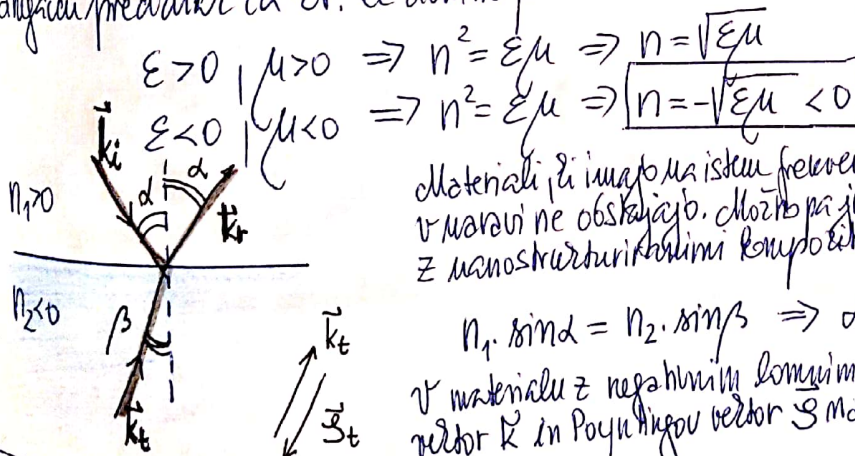 ε>0, μ>0 ⇒ n² = εμ ⇒ n = √εμ
ε<0, μ<0 ⇒ n² = εμ ⇒ n = -√εμ < 0
k⃗i
α α
n₁>0
k⃗r
Materiali, ki imajo na istem
v naravi ne obstajajo. Možno pa
z nanostrukturiranimi
n₂<0
β
k⃗t
n₁. sinα = n₂. sinβ ⇒
k⃗t
S⃗t
v materialu z negativnim lomnim
vektor k⃗ in Poyntingov vektor S⃗